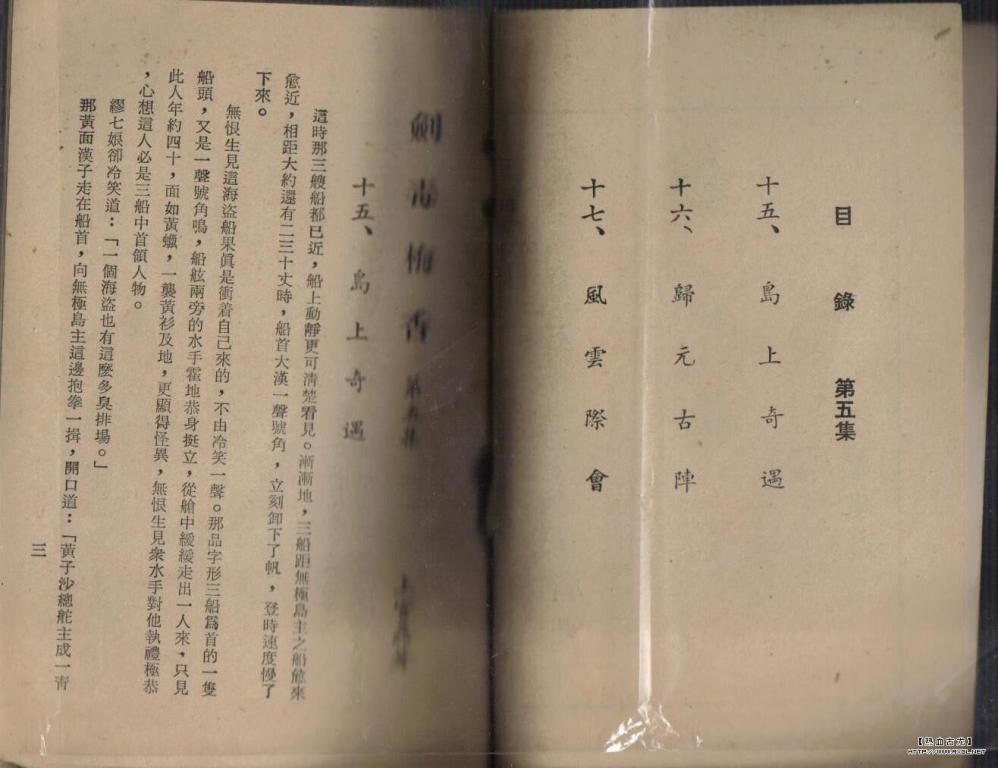 目 錄 第五集
十五、島上奇遇
十六、歸元古陣
十七、風雲際會
劍毒梅香 第五集
十五、島上奇遇
這時那三艘船都已近，船上動靜更可清楚看見。漸漸地，三船距無極島主之船愈來
愈近，相距大約還有二三十丈時，船首大漢一聲號角，立刻卸下了帆，登時速度慢了
下來。
無恨生見這海盜船果眞是衝着自己來的，不由冷笑一聲。那品字形三船爲首的一隻
船頭，又是一聲號角鳴，船舷兩旁的水手霍地恭身挺立，從艙中緩緩走出一人來，只見
此人年約四十，面如黃蠟，一襲黃衫及地，更顯得怪異，無恨生見衆水手對他執禮極恭
，心想這人必是三船中首領人物。
繆七娘卻冷笑道：「一個海盜也有這麼多臭排場。」
那黃面漢子走在船首，向無極島主這邊抱拳一揖，開口道：「黃子沙總舵主成一靑
三
【热血古龙】